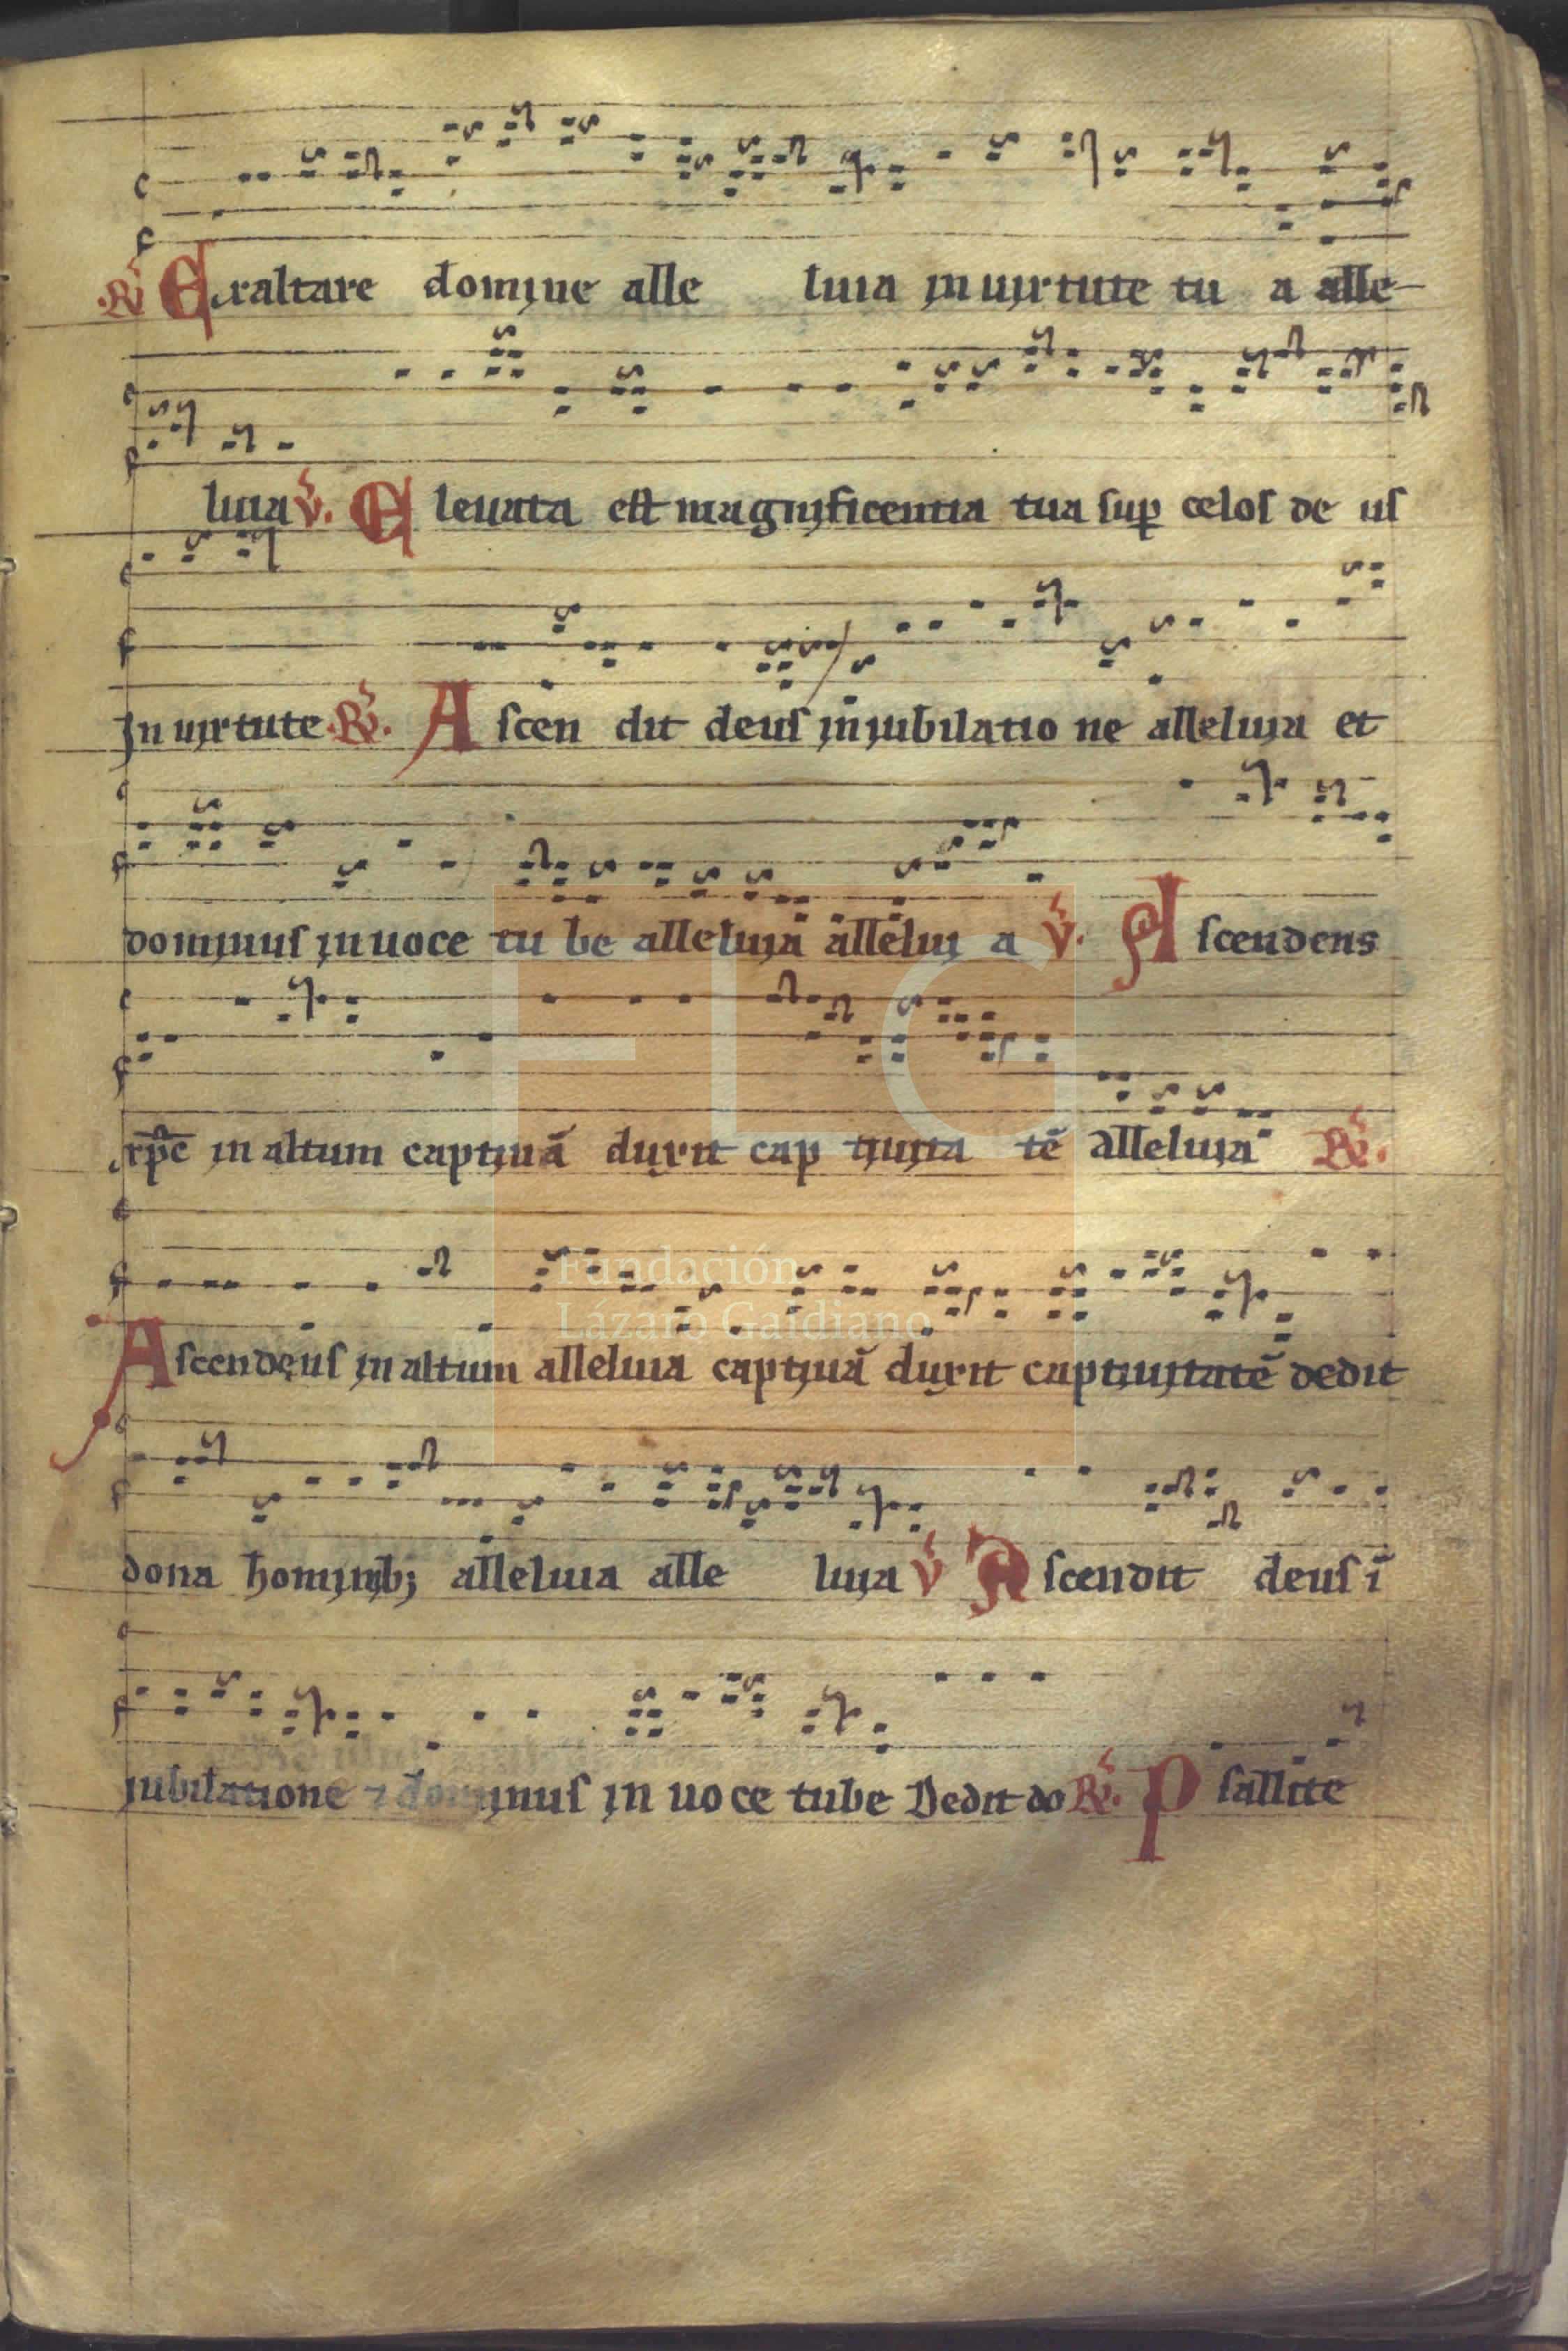 R̃ Exaltare domine alle luia in uirtute tu a alle-
luia ṽ. E leuata est magnificentia tua suꝑ celos de us
In uirtute R̃. A scen dit deus in iubilatio ne alleluia et
dominus in uoce tu be alleluia allelui a ṽ. A scendens
xp̄c in altum captiuā duxit cap tiuita tē alleluia R̃.
Ascendens in altum alleluia captiuā duxit captiuitatē dedit
dona hominib; alleluia alle luia ṽ A scendit deus ī
iubilatione ⁊ dominus in uoce tube Dedit do R̃. P sallite
FLG
Fundación
Lázaro Galdiano